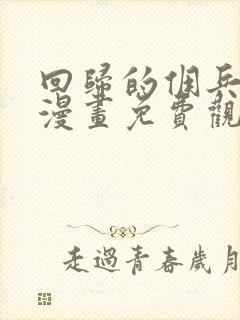 回歸的傭兵
漫畫免費觀
走過青春歲月